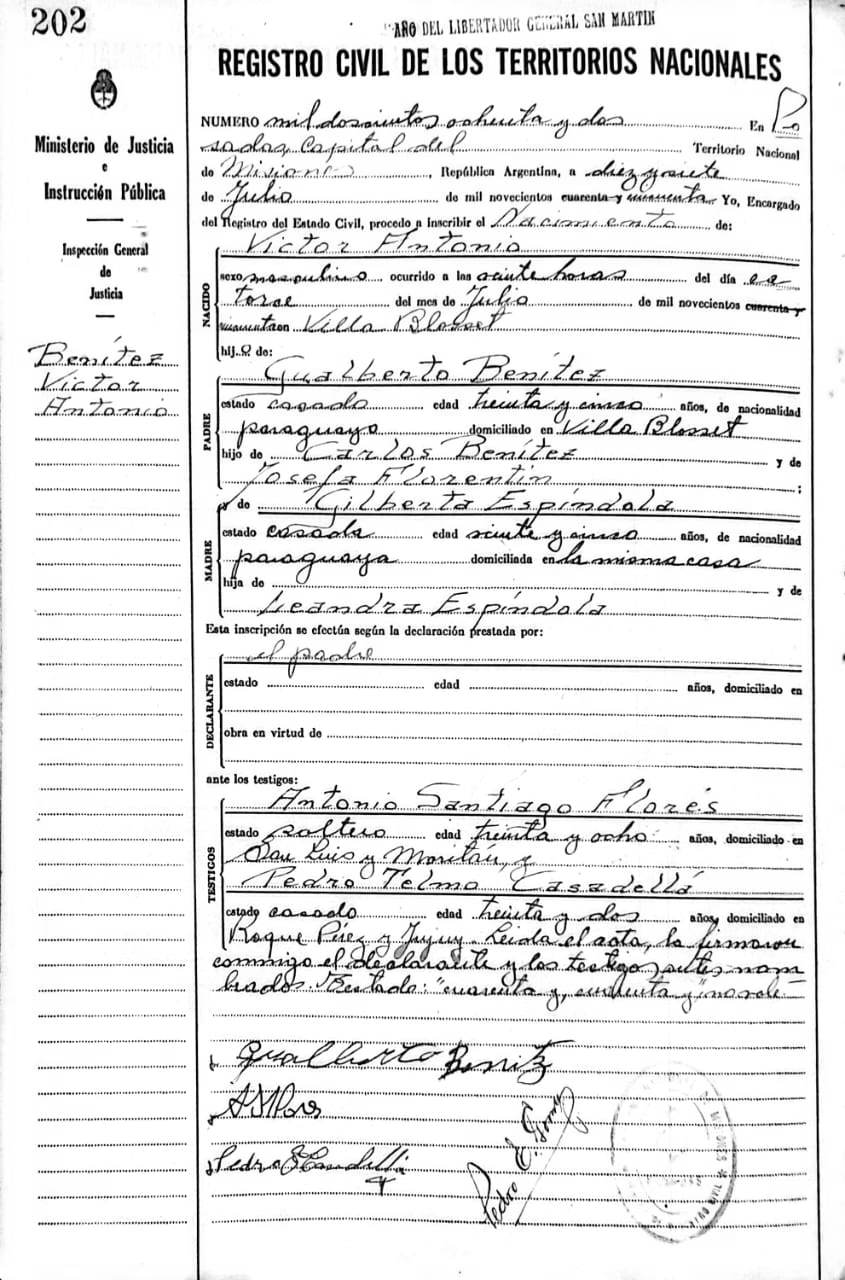 202
"AÑO DEL LIBERTADOR GENERAL SAN MARTIN
REGISTRO CIVIL DE LOS TERRITORIOS NACIONALES
Ministerio de Justicia
e
Instrucción Pública
Inspección General
de
Justicia
Benítez
Victor
Antonio
NUMERO mil doscientos ochenta y dos En Po
sadas, Capital del Territorio Nacional
de Misiones, República Argentina, a diez y siete
de Julio de mil novecientos cuarenta y cincuenta Yo, Encargado
del Registro del Estado Civil, procedo a inscribir el Nacimiento de:
NACIDO
Victor Antonio
sexo masculino ocurrido a las veinte horas del día ca
torce del mes de Julio de mil novecientos cuarenta y
cincuenta en Villa Blosset
hij.o de:
PADRE
Gualberto Benítez
estado casado edad treinta y cinco años, de nacionalidad
paraguayo domiciliado en Villa Blosset
hijo de Carlos Benítez y de
Josefa Florentin ;
MADRE
y de Gilberta Espíndola
estado casada edad veinte y cinco años, de nacionalidad
paraguaya domiciliada en la misma casa
hija de y de
Leandra Espíndola
Esta inscripción se efectúa según la declaración prestada por:
DECLARANTE
el padre
estado edad años, domiciliado en
obra en virtud de
ante los testigos:
TESTIGOS
Antonio Santiago Flores
estado soltero edad treinta y ocho años, domiciliado en
San Luis y Moritán, y
Pedro Telmo Casadellá
estado casado edad treinta y dos años, domiciliado en
Roque Pérez y Jujuy. Leida el acta, la firmaron
conmigo el declarante y los testigos antes nom
brados. Testado: "cuarenta y, cincuenta y" no vale.
Gualberto Benitz
A S Flores
Pedro
Pedro E.